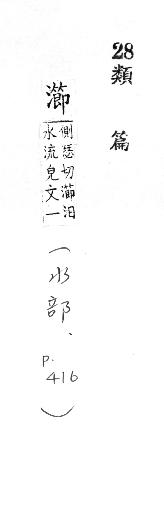 28類篇
瀄
側瑟切瀄汨
水流皃文一
(水部、
p.
416)